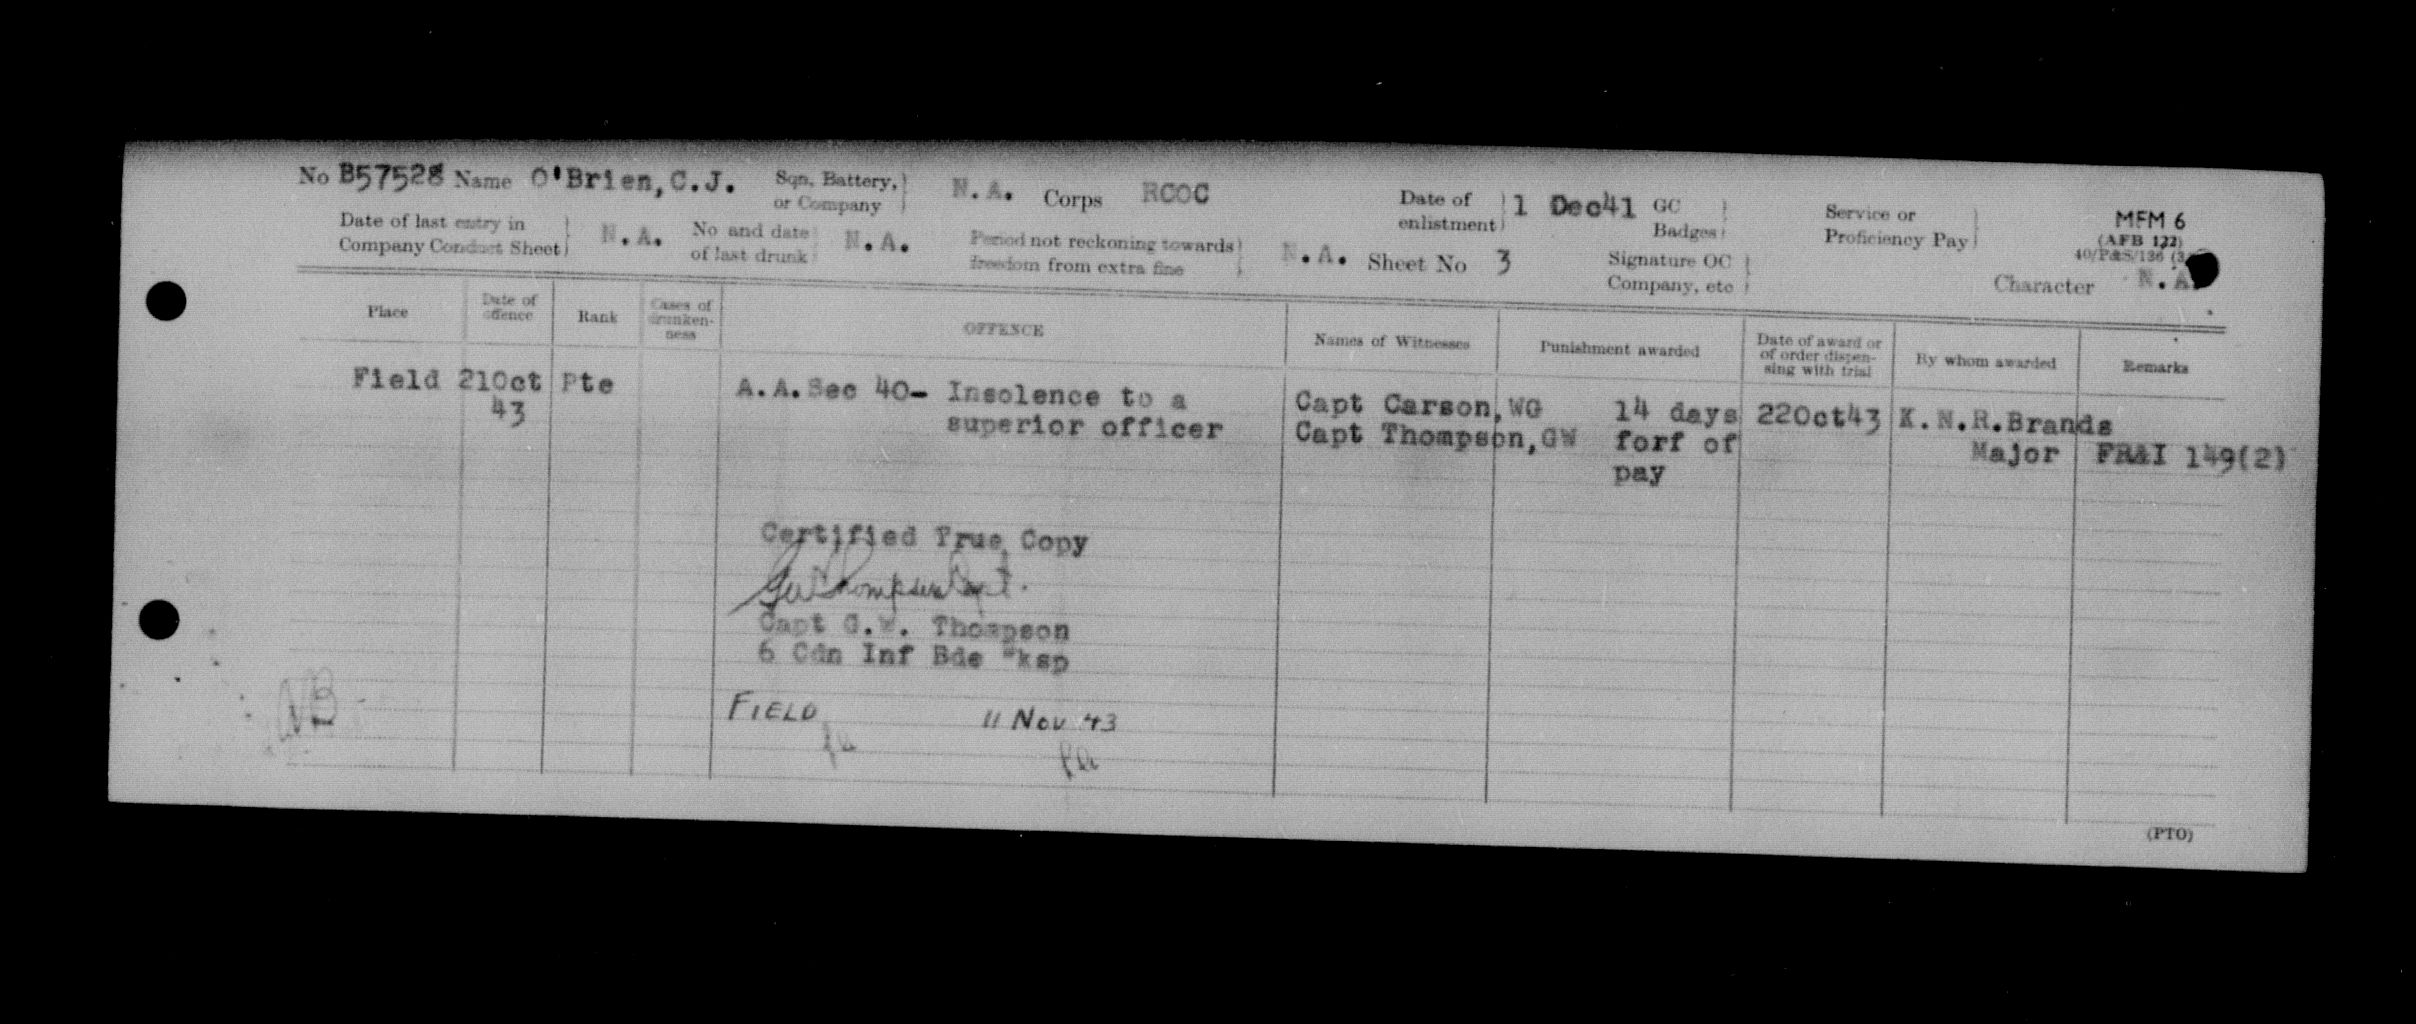 No B57528 Name O'Brien, C.J. Sqn, Battery, or Company N.A. Corps RCOC Date of enlistment 1 Dec41 GC Badges Service or Proficiency Pay MFM 6
(AFB 122)
40/P&S/136
Date of last entry in Company Conduct Sheet N.A. No and date of last drunk N.A. Period not reckoning towards freedom from extra fine N.A. Sheet No 3 Signature OC Company, etc Character N.A.
Place Date of offence Rank Cases of drunken-ness OFFENCE Names of Witnesses Punishment awarded Date of award or of order dispen-sing with trial By whom awarded Remarks
Field 21Oct Pte A.A.Sec 40- Insolence to a Capt Carson,WG 14 days 22Oct43 K.N.R.Brands
43 superior officer Capt Thompson,GW forf of Major FR&I 149(2)
pay
Certified True Copy
GW Thompson Capt.
Capt G.W. Thompson
6 Cdn Inf Bde Wksp
FIELD 11 Nov 43
(PTO)